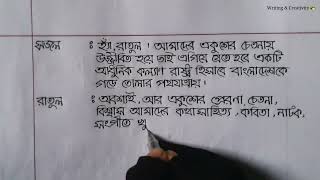 Writing & Creativity
সজল : হ্যাঁ, রাতুল। আমাদের একুশের চেতনায়
উজ্জীবিত হয়ে তাই এগিয়ে যেতে হবে একটি
আধুনিক কল্যাণ রাষ্ট্র হিসাবে বাংলাদেশকে
গড়ে তোলার পথযাত্রায়।
রাতুল : অবশ্যই, আর একুশের প্রেরণা, চেতনা,
বিশ্বাস আমাদের কথাসাহিত্য, কবিতা, নাটক,
সংগীতে খু